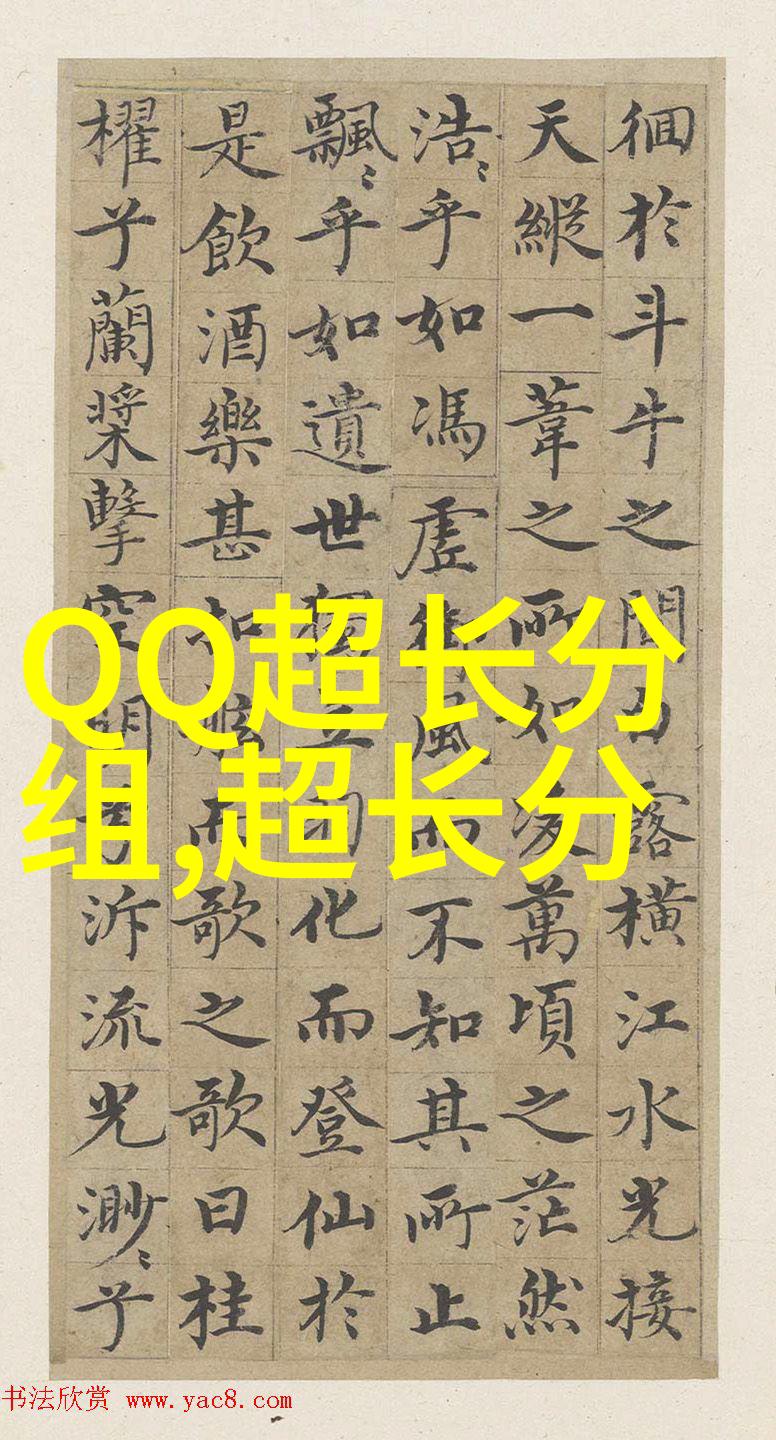 徊於斗牛之間白露橫江水光接
天縱一葦之所如凌萬頃之茫然
浩〻乎如馮虛御風而不知其所止
飄〻乎如遺世獨立羽化而登仙於
是飲酒樂甚扣舷而歌之歌曰桂
櫂兮蘭槳擊空明兮泝流光渺〻兮
QQ超长分
组,超长分
书法欣赏 www.yac8.com